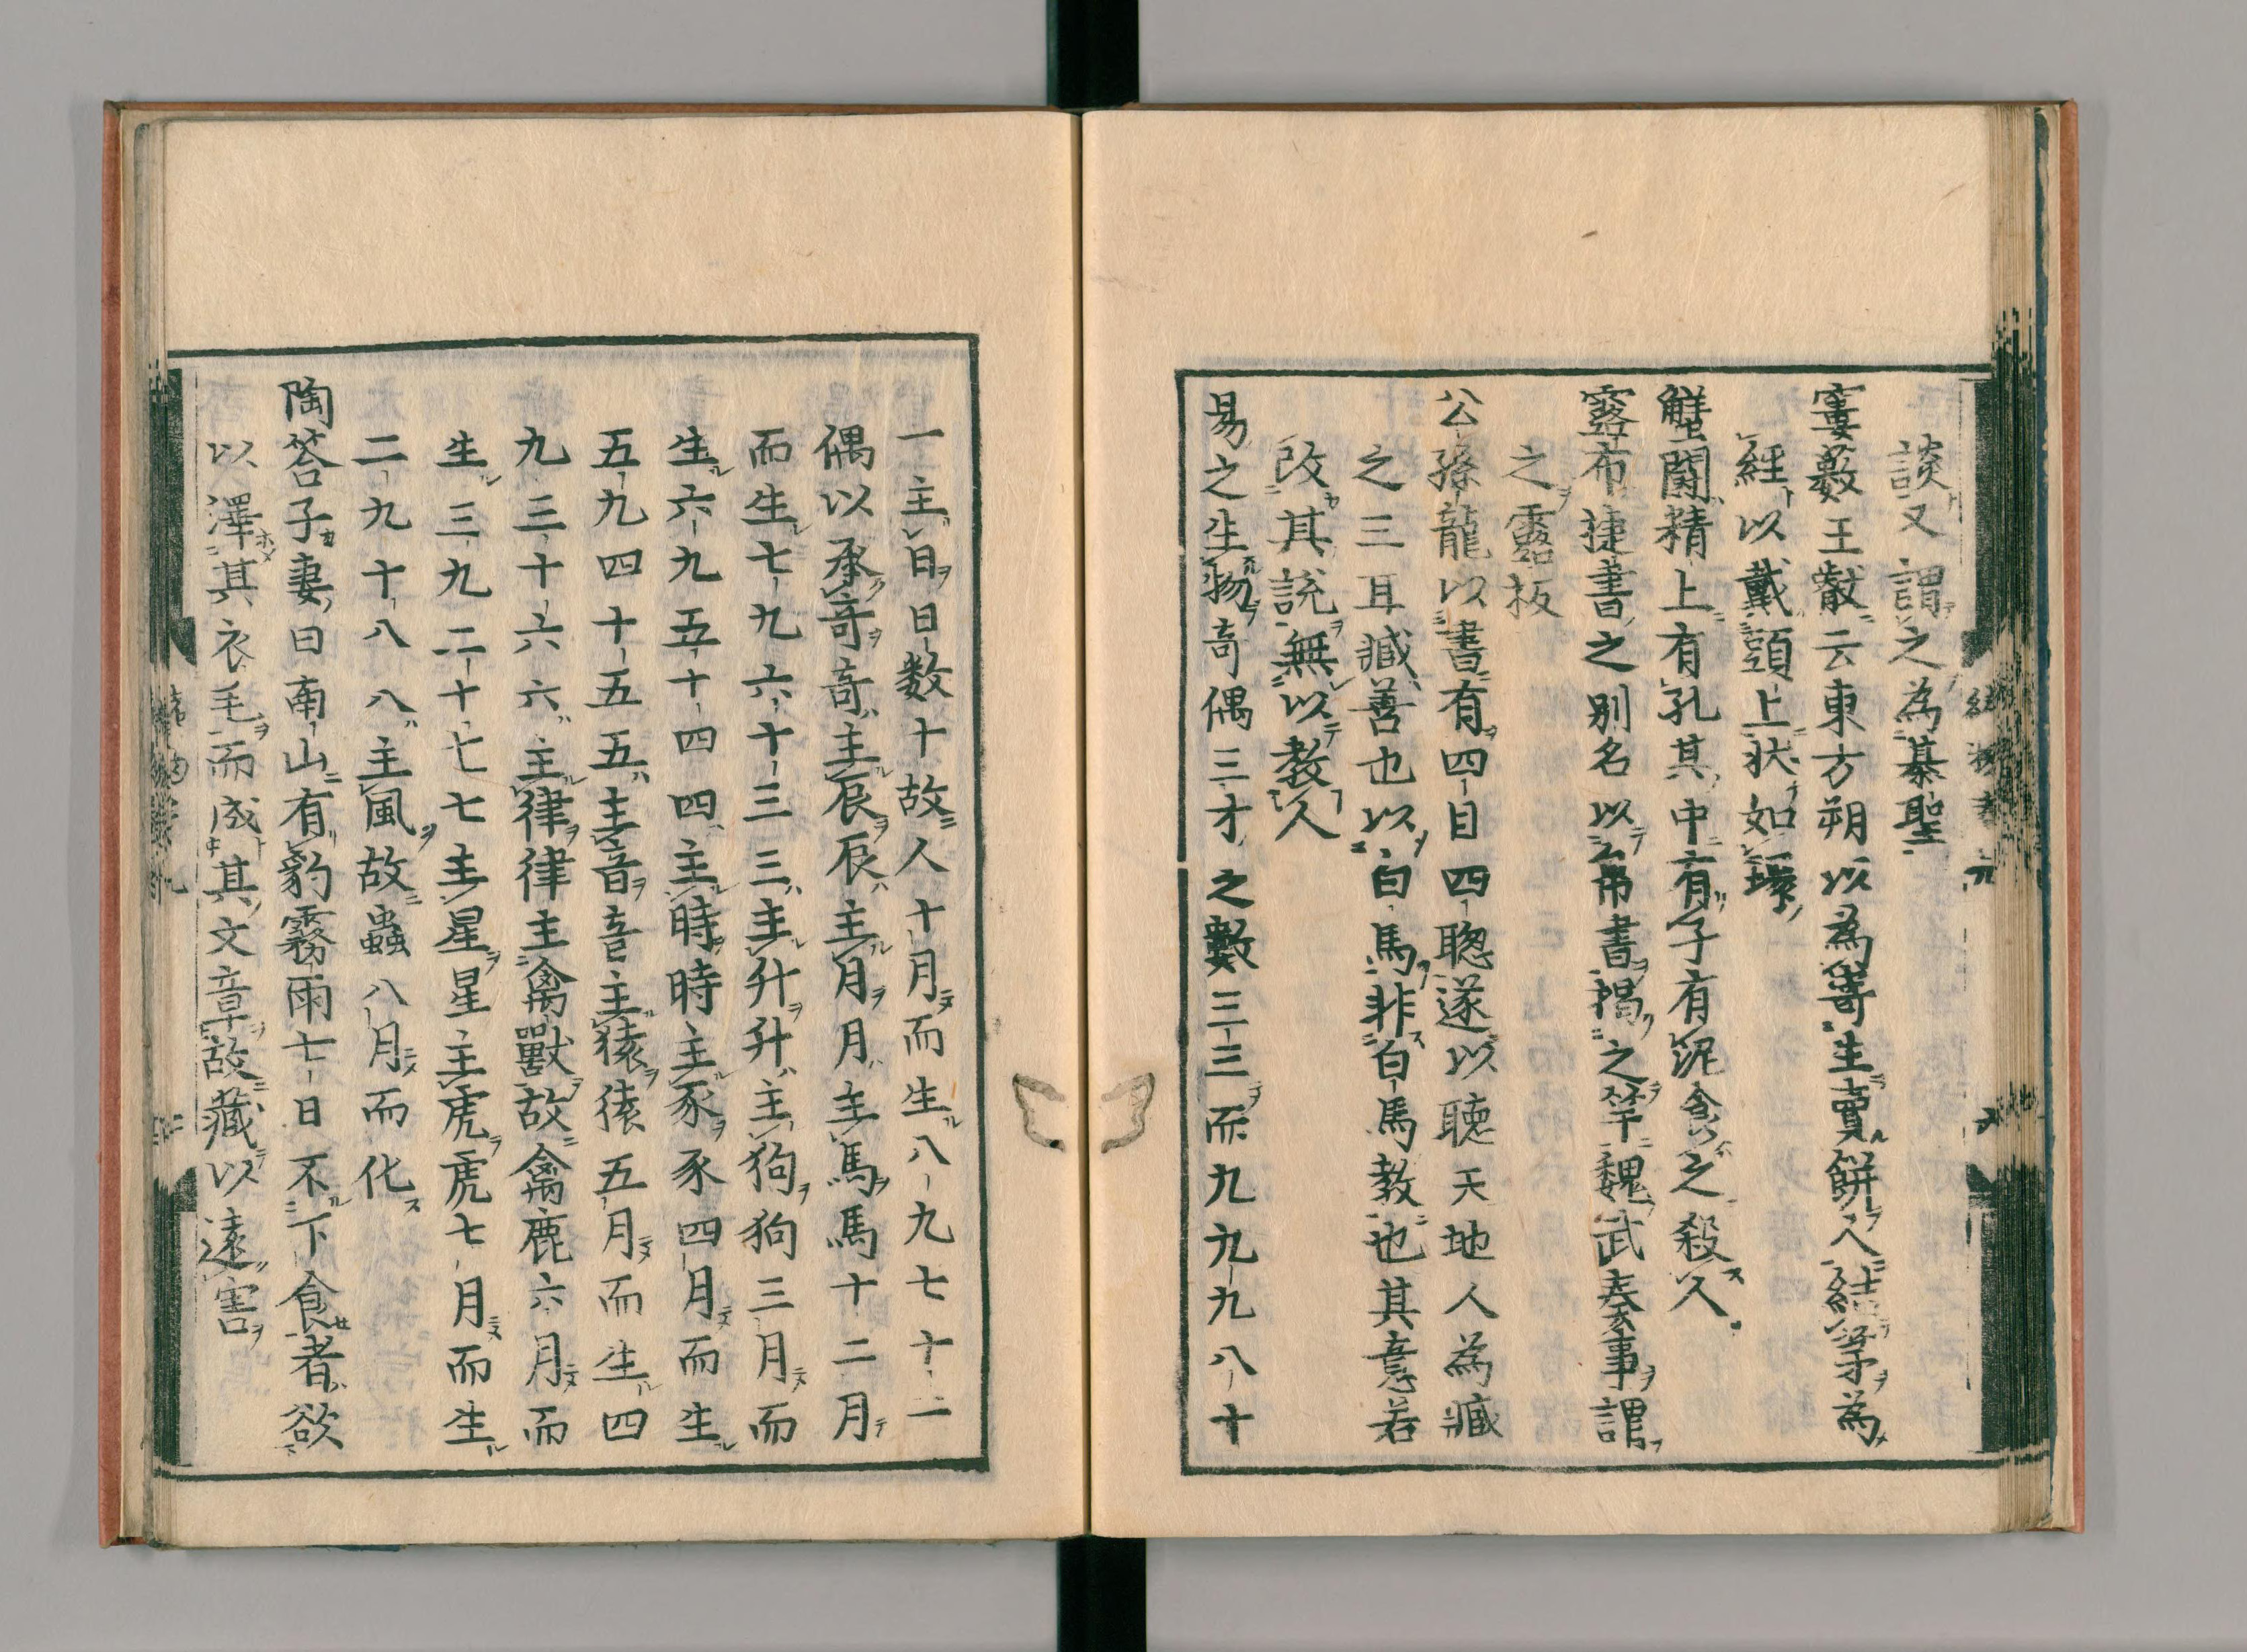 談又謂之為棊聖
窶藪王觀云東方朔以為寄生賣餅人結茅為
経以戴頭上状如環
蟹闘精上有孔其中有子有泥食之殺人
露布捷書之別名以帛書揭之竿魏武奏事謂
之露板
公孫龍以書有四目四聰遂以聴天地人為臧
之三耳臧善也以白馬非白馬教也其意若
改其説無以教人
易之生物奇偶三才之數三三而九九九八十
一主日日数十故人十月而生八九七十二
偶以承奇奇主辰辰主月月主馬馬十二月
而生七九六十三三主升升主狗狗三月而
生六九五十四四主時時主豕豕四月而生
五九四十五五主音音主猿猿五月而生四
九三十六六主律律主禽獸故禽鹿六月而
生三九二十七七主星星主虎虎七月而生
二九十八八主風故蟲八月而化
陶答子妻曰南山有豹霧雨七日不下食者欲
以澤其衣毛而成其文章故藏以遠害